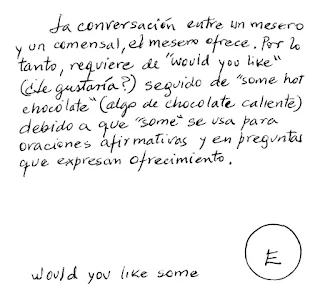 La conversación entre un mesero
y un comensal, el mesero ofrece. Por lo
tanto, requiere de "would you like"
(¿Le gustaría?) seguido de "some hot
chocolate" (algo de chocolate caliente)
debido a que "some" se usa para
oraciones afirmativas y en preguntas
que expresan ofrecimiento.
E
would you like some